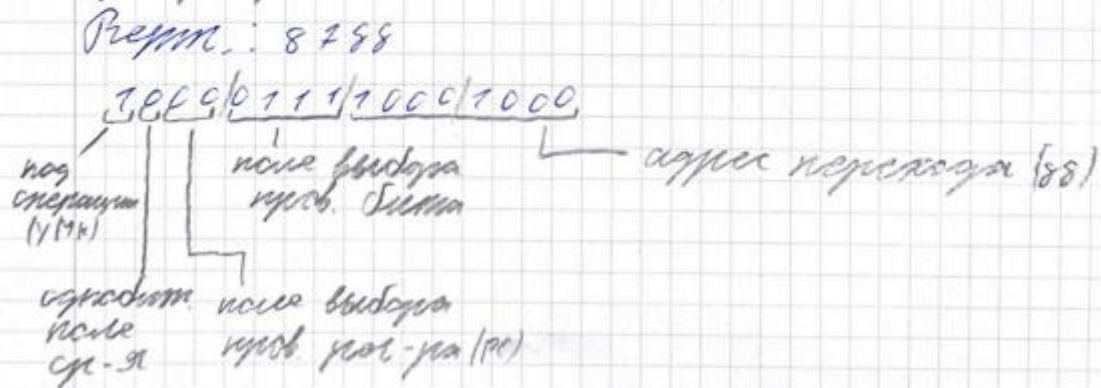 Верт.: 8788
1000/0111/1000/1000
код
операции
(УМК)
поле выбора
пров. бита
адрес перехода (88)
однобитн.
поле
ср-я
поле выбора
пров. рег-ра (РС)